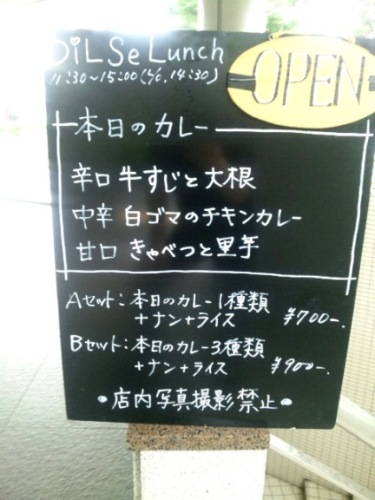 DiL Se Lunch
11:30~15:00(L/o.14:30)
OPEN
本日のカレー
辛口 牛すじと大根
中辛 白ゴマのチキンカレー
甘口 きゃべつと里芋
Aセット:本日のカレー1種類
+ナン+ライス ¥700-.
Bセット:本日のカレー3種類
+ナン+ライス ¥900-.
●店内写真撮影禁止●